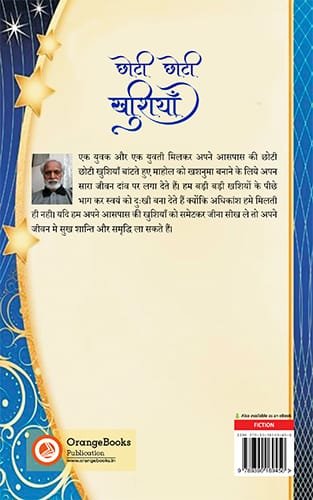 छोटी छोटी
खुशियाँ
एक युवक और एक युवती मिलकर अपने आसपास की छोटी
छोटी खुशियाँ बांटते हुए माहोल को खशनुमा बनाने के लिये अपन
सारा जीवन दांव पर लगा देते हैं। हम बड़ी बड़ी खशियों के पीछे
भाग कर स्वयं को दुःखी बना देते हैं क्योंकि अधिकांश हमे मिलती
ही नही। यदि हम अपने आसपास की खुशियों को समेटकर जीना सीख ले तो अपने
जीवन मे सुख शान्ति और समृद्धि ला सकते हैं।
Also available as an eBook
FICTION
OrangeBooks
Publication
www.orangebooks.in